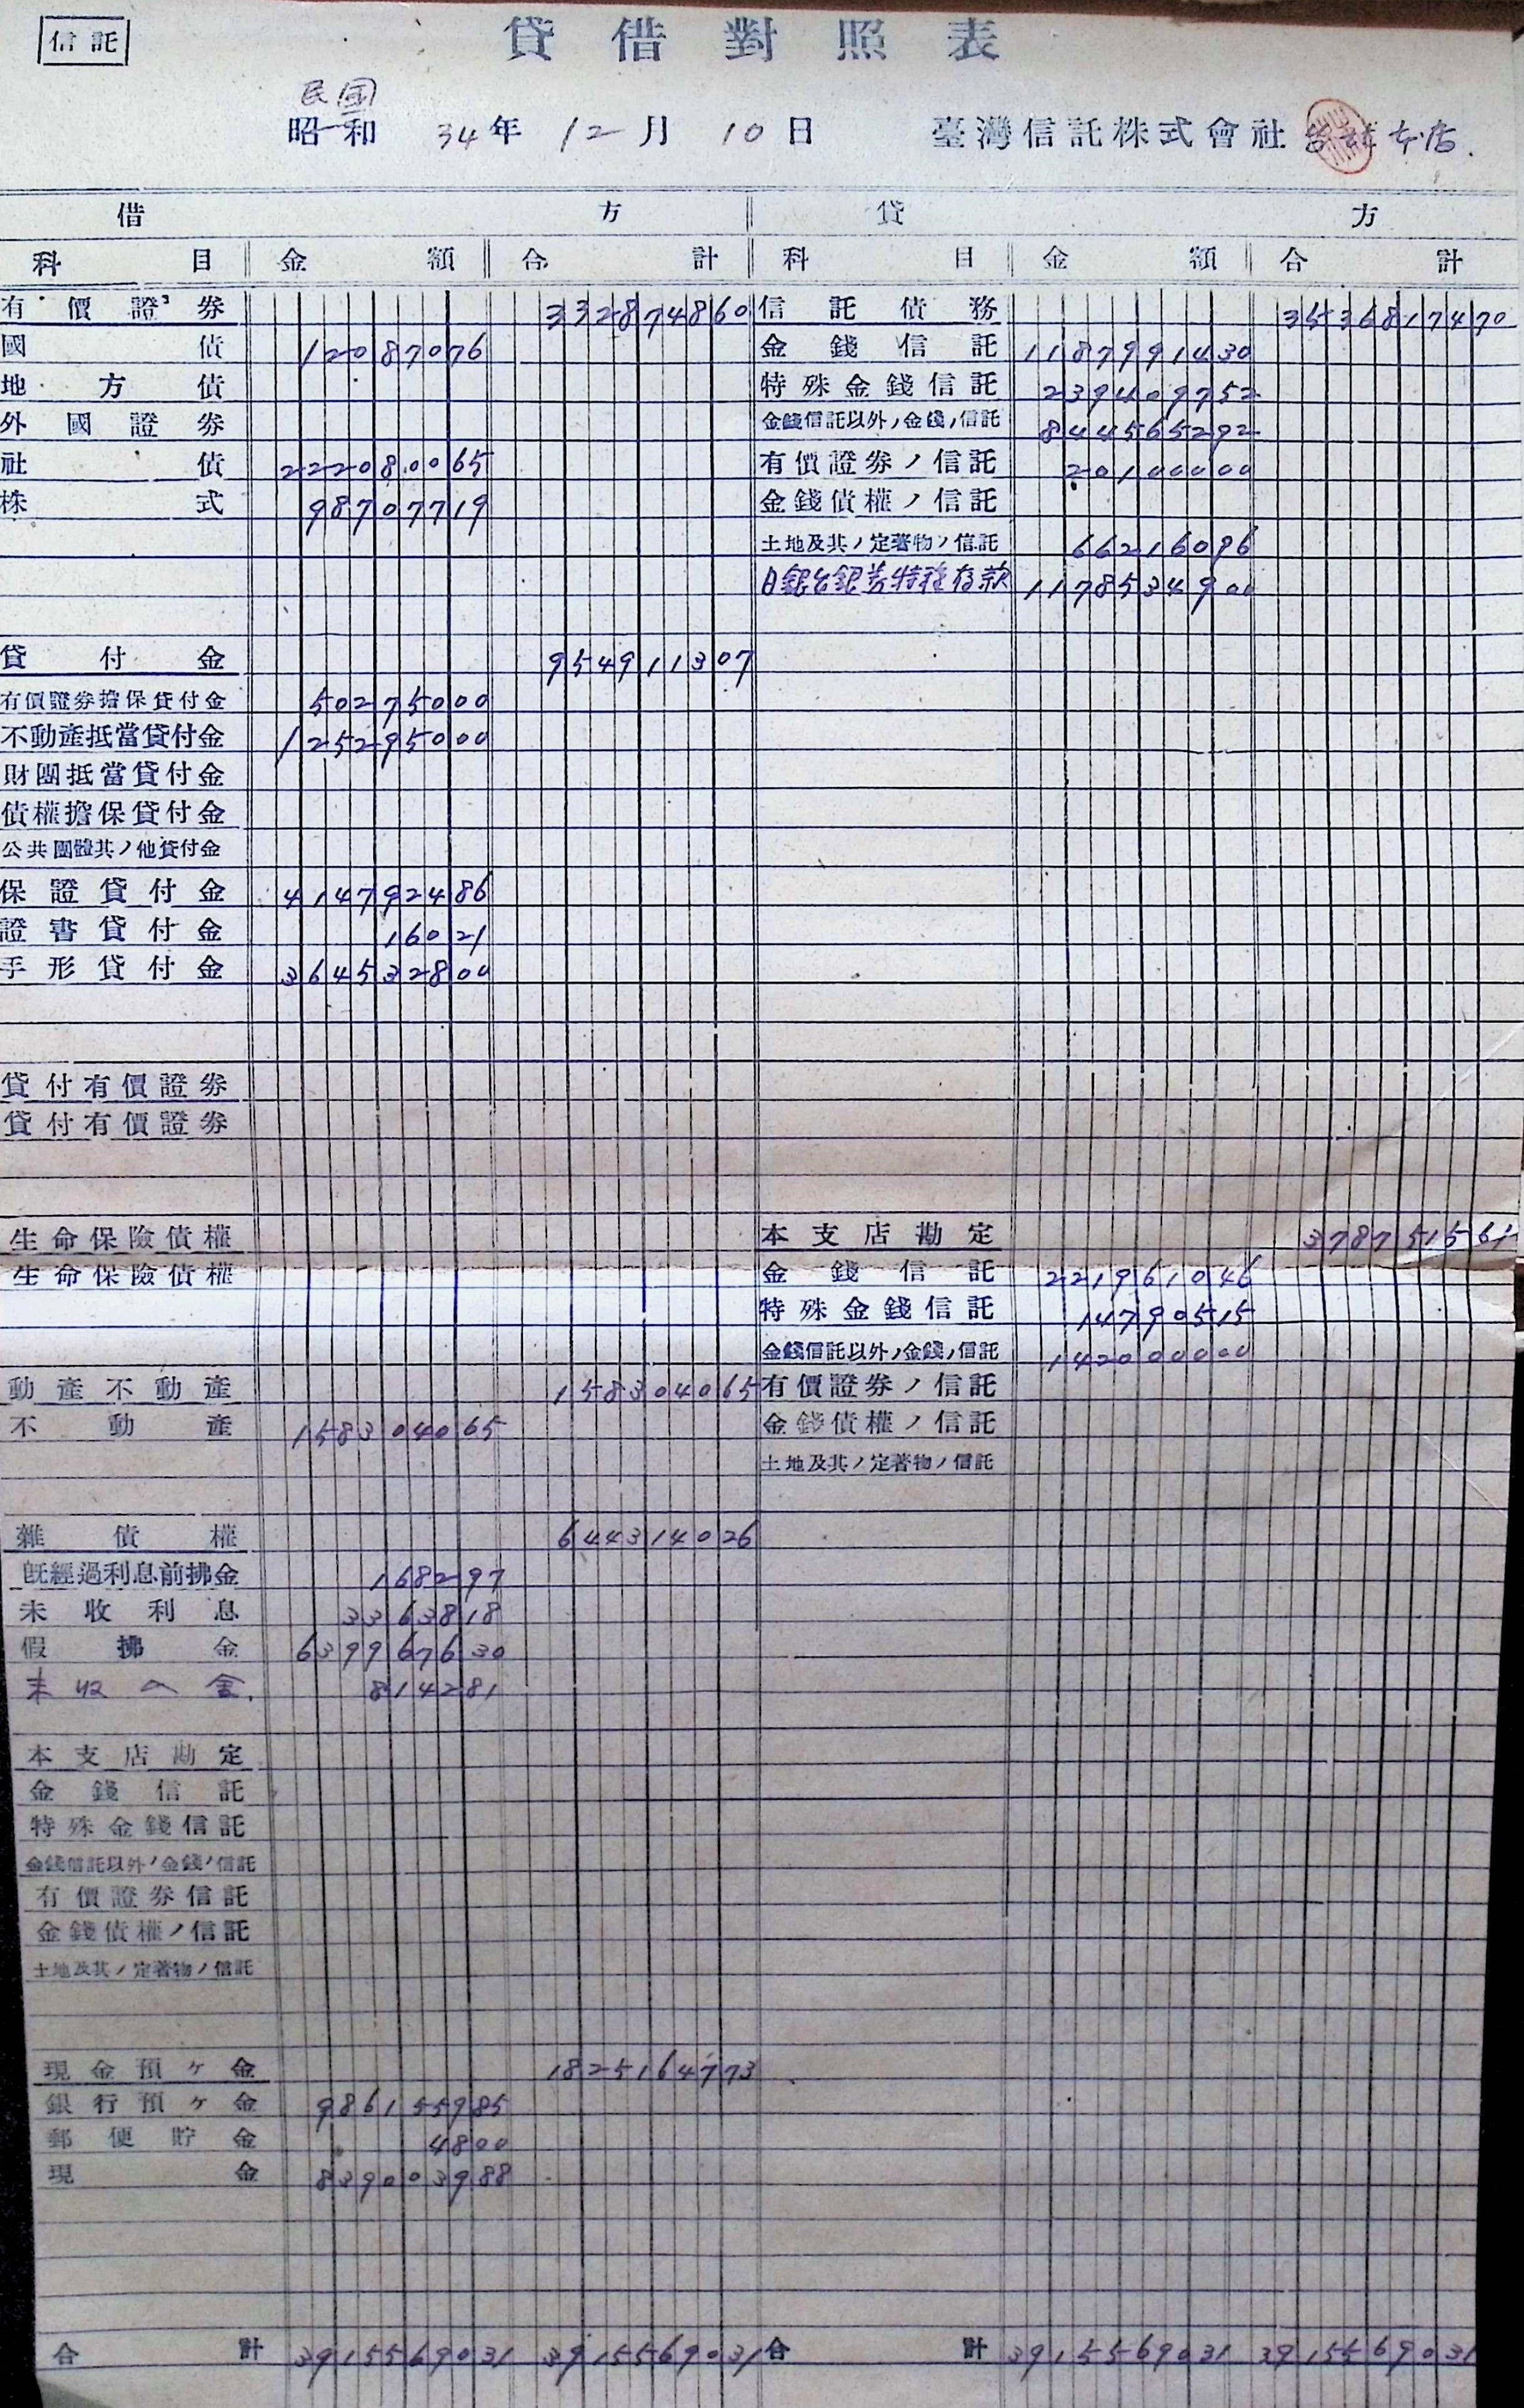 信託
貸借對照表
民國
昭和 34年 12月 10日 臺灣信託株式會社 台北本店.
借方 貸方
科目 金額 合計 科目 金額 合計
有價證券 332874860 信託債務 3536817470
國債 12087076 金錢信託 1187991430
地方債 特殊金錢信託 239409752
外國證券 金錢信託以外ノ金錢ノ信託 844565292
社債 222080065 有價證券ノ信託 20100000
株式 98707719 金錢債權ノ信託
土地及其ノ定著物ノ信託 66216096
日銀台銀券特種存款 1178534900
貸付金 954911307
有價證券擔保貸付金 50275000
不動產抵當貸付金 125295000
財團抵當貸付金
債權擔保貸付金
公共團體其ノ他貸付金
保證貸付金 414792486
證書貸付金 16021
手形貸付金 364532800
貸付有價證券
貸付有價證券
生命保險債權 本支店勘定 378751561
生命保險債權 金錢信託 221961046
特殊金錢信託 14790515
金錢信託以外ノ金錢ノ信託 142000000
動產不動產 158304065 有價證券ノ信託
不動產 158304065 金錢債權ノ信託
土地及其ノ定著物ノ信託
雜債權 644314026
既經過利息前拂金 168297
未收利息 3363818
假拂金 639967630
未收入金. 814281
本支店勘定
金錢信託
特殊金錢信託
金錢信託以外ノ金錢ノ信託
有價證券信託
金錢債權ノ信託
土地及其ノ定著物ノ信託
現金預ヶ金 1825164773
銀行預ヶ金 986155985
郵便貯金 4800
現金 839003988
合計 3915569031 3915569031 合計 3915569031 3915569031